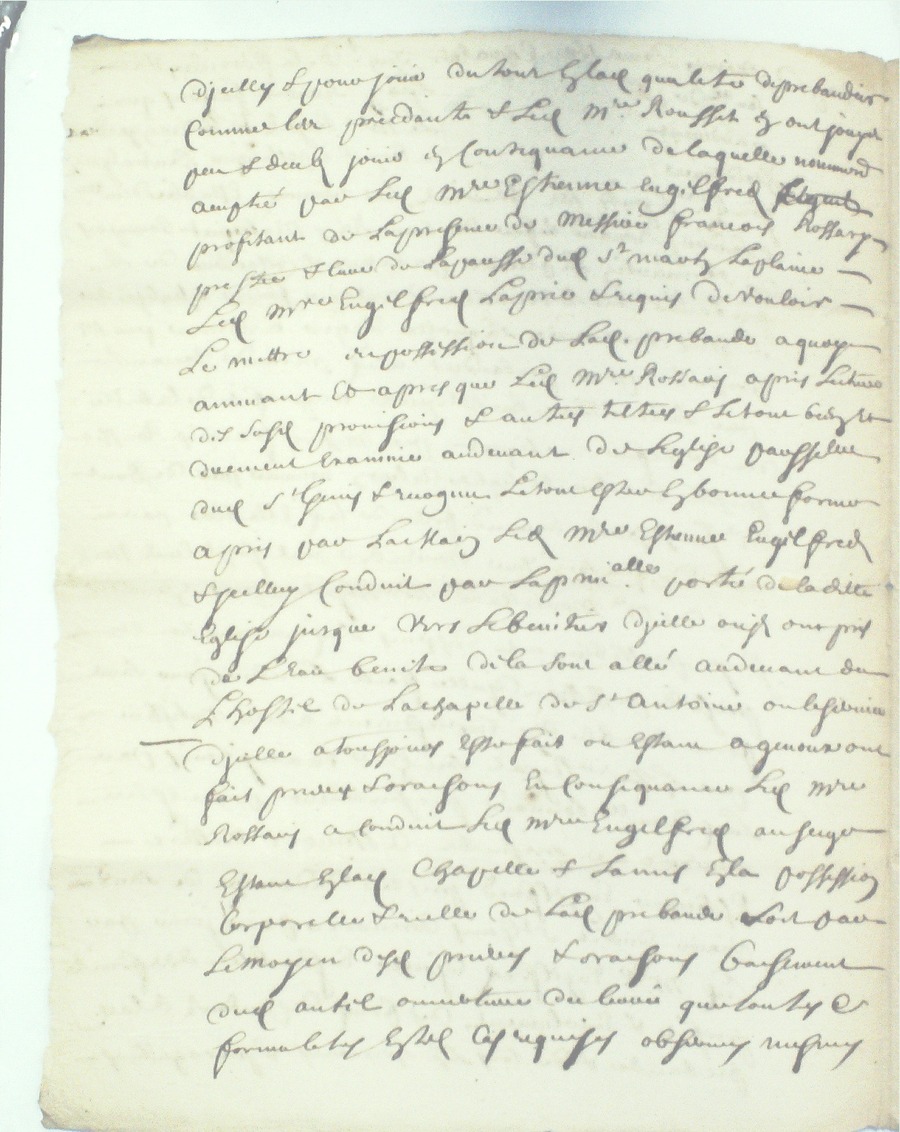 d'jcelle & pour jouir du tout en lad qualité de prebandier
comme les precedants & led Mre Rousset en ont jouy
peu & deub jouir en consequance de laquelle nommon
acepté par led Mre Estienne Engilfred
profitant de la presence de Messire francois Rossary
prestre & cure de la parroisse dud St martin la plaine
Led Mre Engilfred la prie & requis de vouloir
le mettre en possession de lad prebande a quoy
annuant Et apres que led Mre Rossary apris lecture
des susd provisions & autres tiltres & le tout bien &
duement examine audevant de leglise parrosselle
dud St & recognu le tout estre en bonne forme
apris par la main led Mre Estienne Engilfred
& jcelluy conduit par la prin alle porte de laditte
Eglise jusque vers le benitier d'jcelle ou jls ont pris
de l'eau benite de la sont allé audevant de
L'hostel de la chapelle de St Antoine ou le service
d'jcelle a tousjours esté fait ou estant a genoux ont
fait prieres & oraisons En consequance led Mre
Rossary a conduit led Mre Engilfred au siege
Estant en lad Chapelle & la mis en la possession
Corporelle & reelle de lad prebande soit par
le moyen desd prieres & oraisons baisement
dud autel ouverture du livre que toutes &
formalites en tel cas requises observees